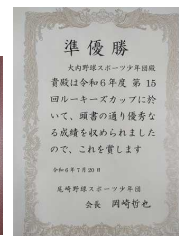 準優勝
大内野球スポーツ少年団殿
貴殿は令和6年度 第15
回ルーキーズカップに於
いて、頭書の通り優秀な
る成績を収められました
ので、これを賞します
令和6年7月20日
尾崎野球スポーツ少年団
会長 岡崎哲也